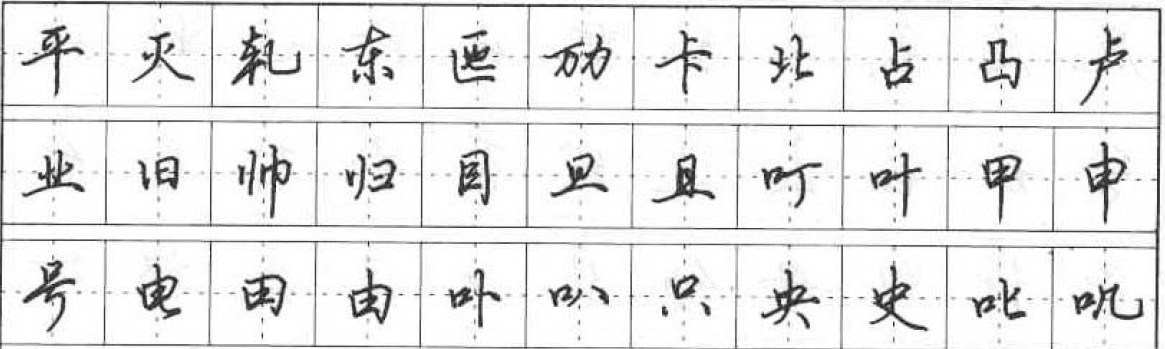 平灭轧东匜劢卡北占凸卢
业旧帅归目旦且叮叶甲申
号电田由卟叭只央史叱叽